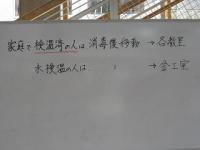 家庭で検温済の人は 消毒後移動 → 各教室
未検温の人は 〃 → 金工室